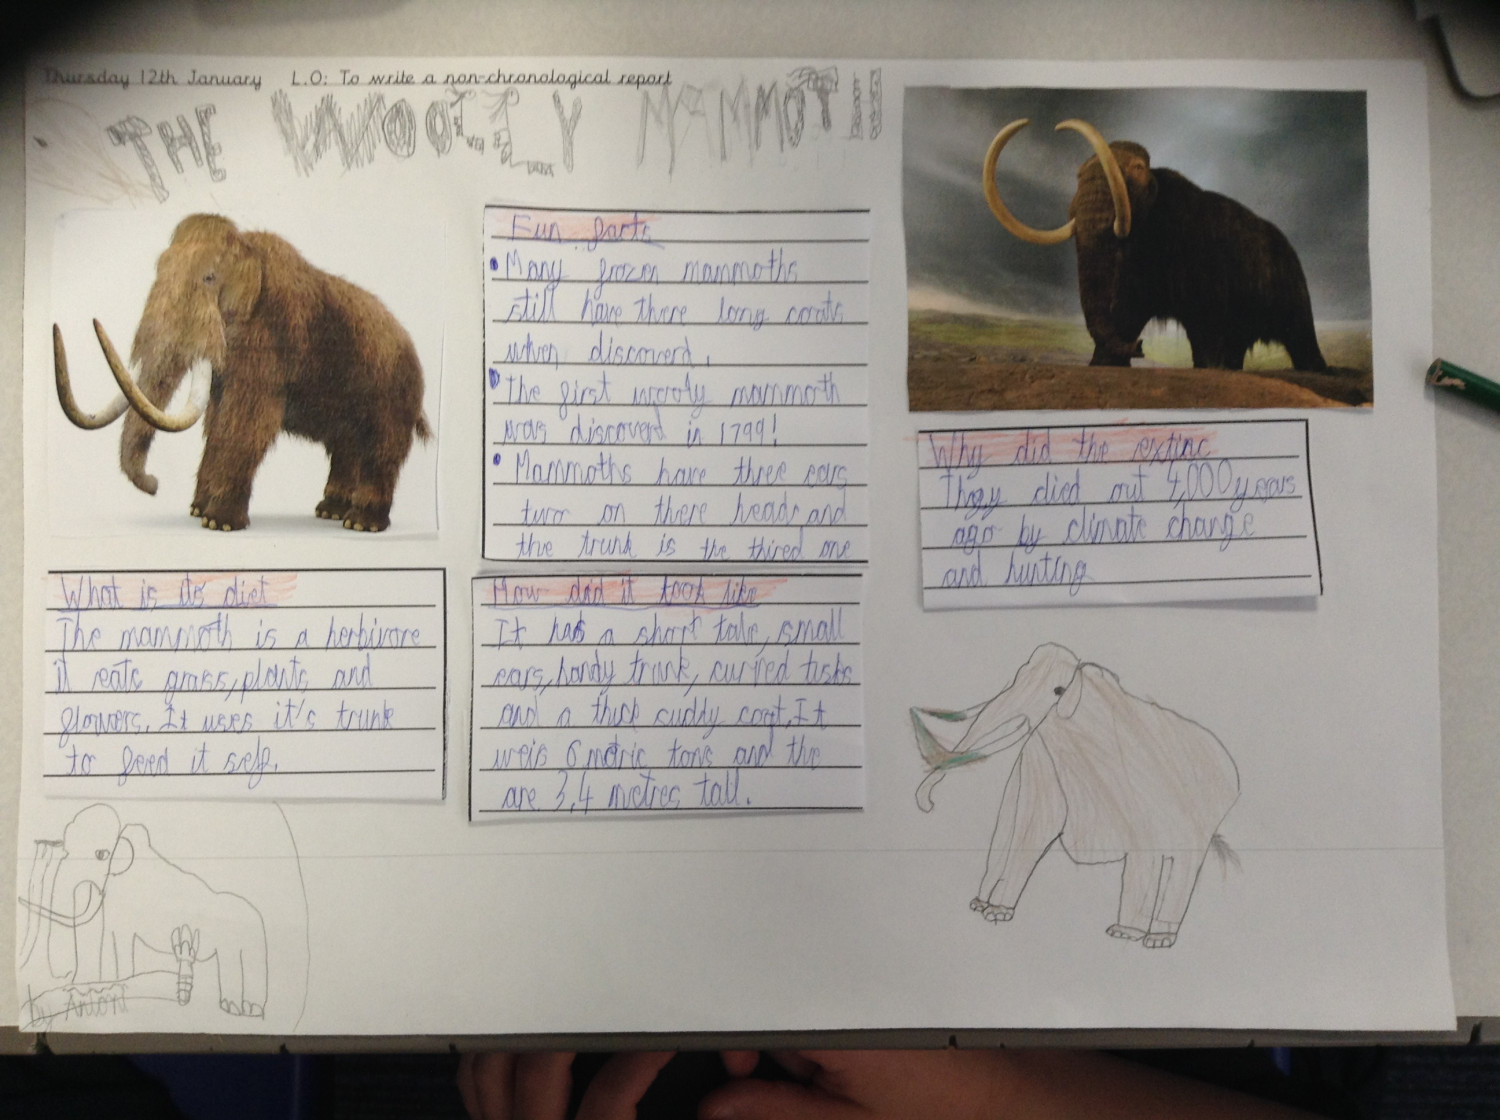 Thursday 12th January L.O: To write a non-chronological report
THE WOOLLY MAMMOTH
Fun facts
Many frozen mammoths
still have there long coats
when discoverd.
The first wooly mammoth
was discoverd in 1799!
Mammoths have three ears
two on there heads and
the trunk is the thired one
Why did the extinc
They died out 4,000 years
ago by climate change
and hunting
What is its diet
The mammoth is a herbivore
it eats grass, plants and
flowers. It uses it's trunk
to feed it self.
How did it look like
It has a short tale, small
ears, handy trunk, curved tusks
and a thick cuddy coat. It
weis 6 metric tons and the
are 3,4 metres tall.
by